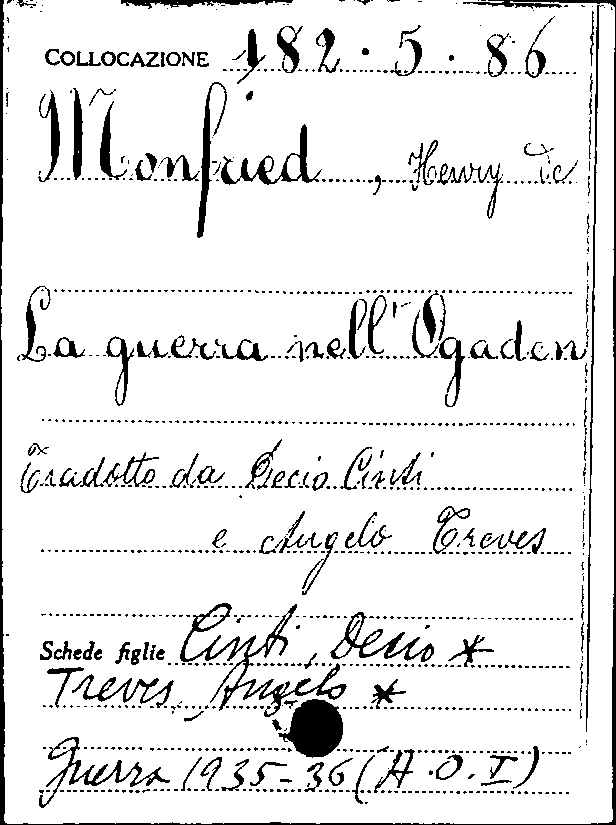 COLLOCAZIONE 182.5.86
Monfried, Henry de
La guerra nell'Ogaden
Tradotto da Decio Cinti
e Angelo Treves
Schede figlie Cinti, Decio *
Treves, Angelo *
Guerra 1935-36 (A.O.I)